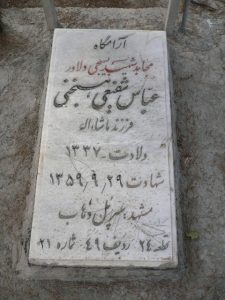 آرامگاه
مجاهد شهید بسیجی دلاور
عباس شفیعی
فرزند ماشااله
ولادت ۱۳۳۷
شهادت ۱۳۵۹٫۹٫۲۹
مشهد، سرپل ذهاب
قطعه ۲۴ ردیف ۴۹ شماره ۲۱